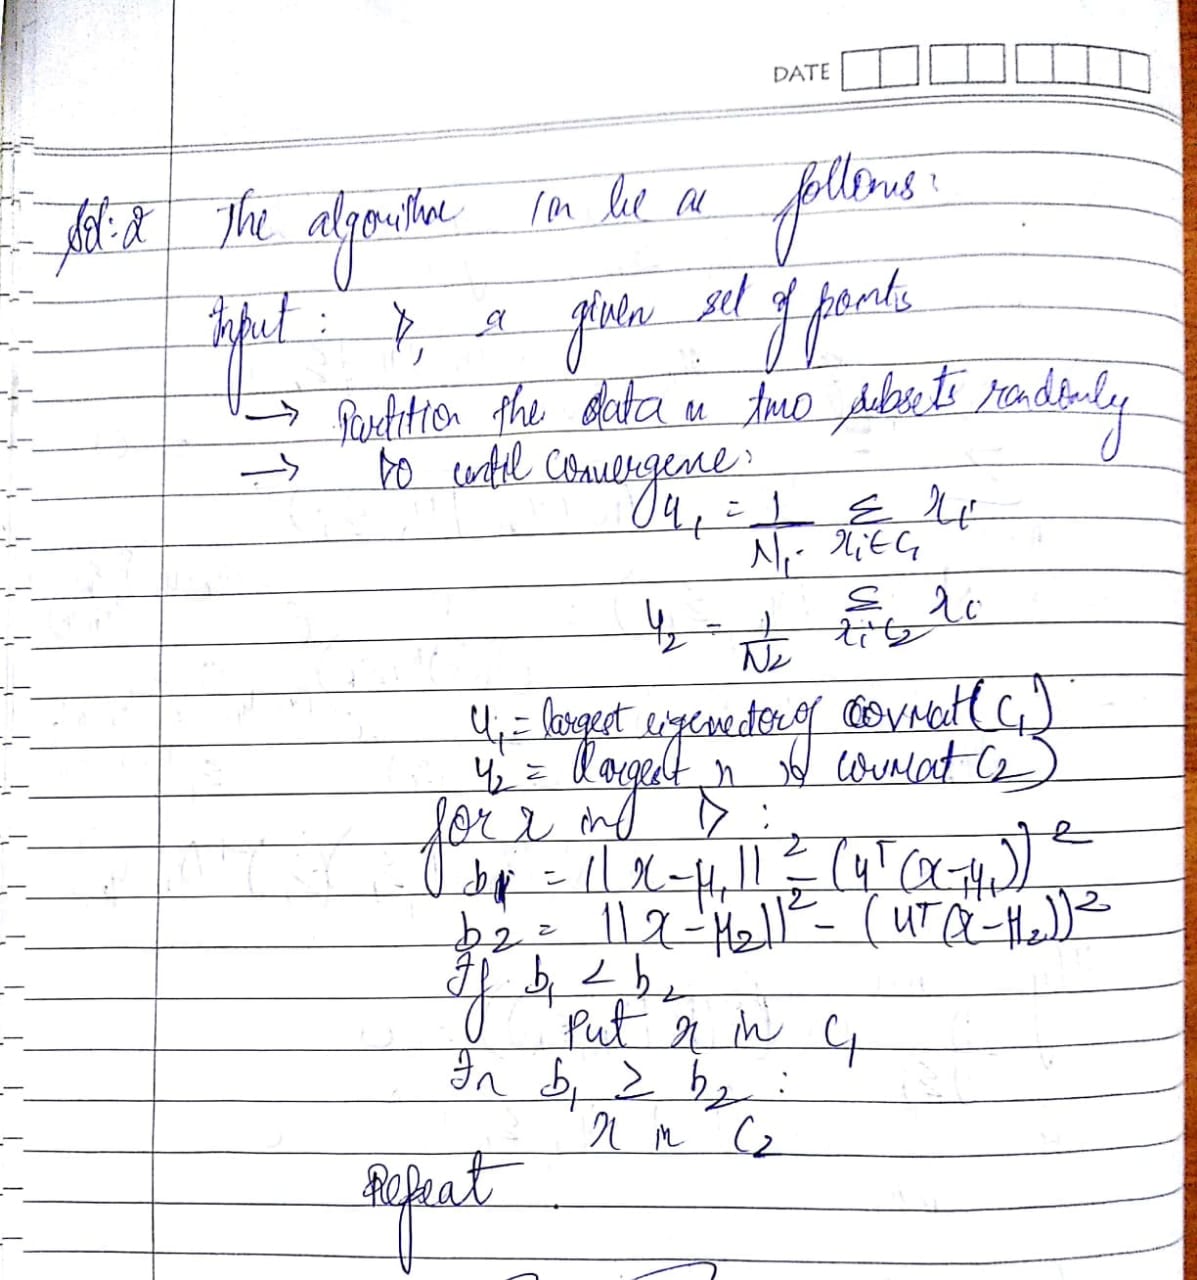 DATE
Sol:2 The algorithm can be as follows:
Input: D, a given set of points
→ Partition the data in two subsets randomly
→ Do until convergene:
μ₁ = 1/N₁ Σ xᵢ∈C₁ xᵢ
μ₂ = 1/N₂ Σ xᵢ∈C₂ xᵢ
u₁ = largest eigenvector of COVMat(C₁)
u₂ = largest " of COVMat C₂)
for x in D:
b₁ = ||x-μ₁||² - (uᵀ(x-μ₁))²
b₂ = ||x-μ₂||² - (uᵀ(x-μ₂))²
If b₁ < b₂
Put x in C₁
b₁ ≥ b₂:
x in C₂
Repeat